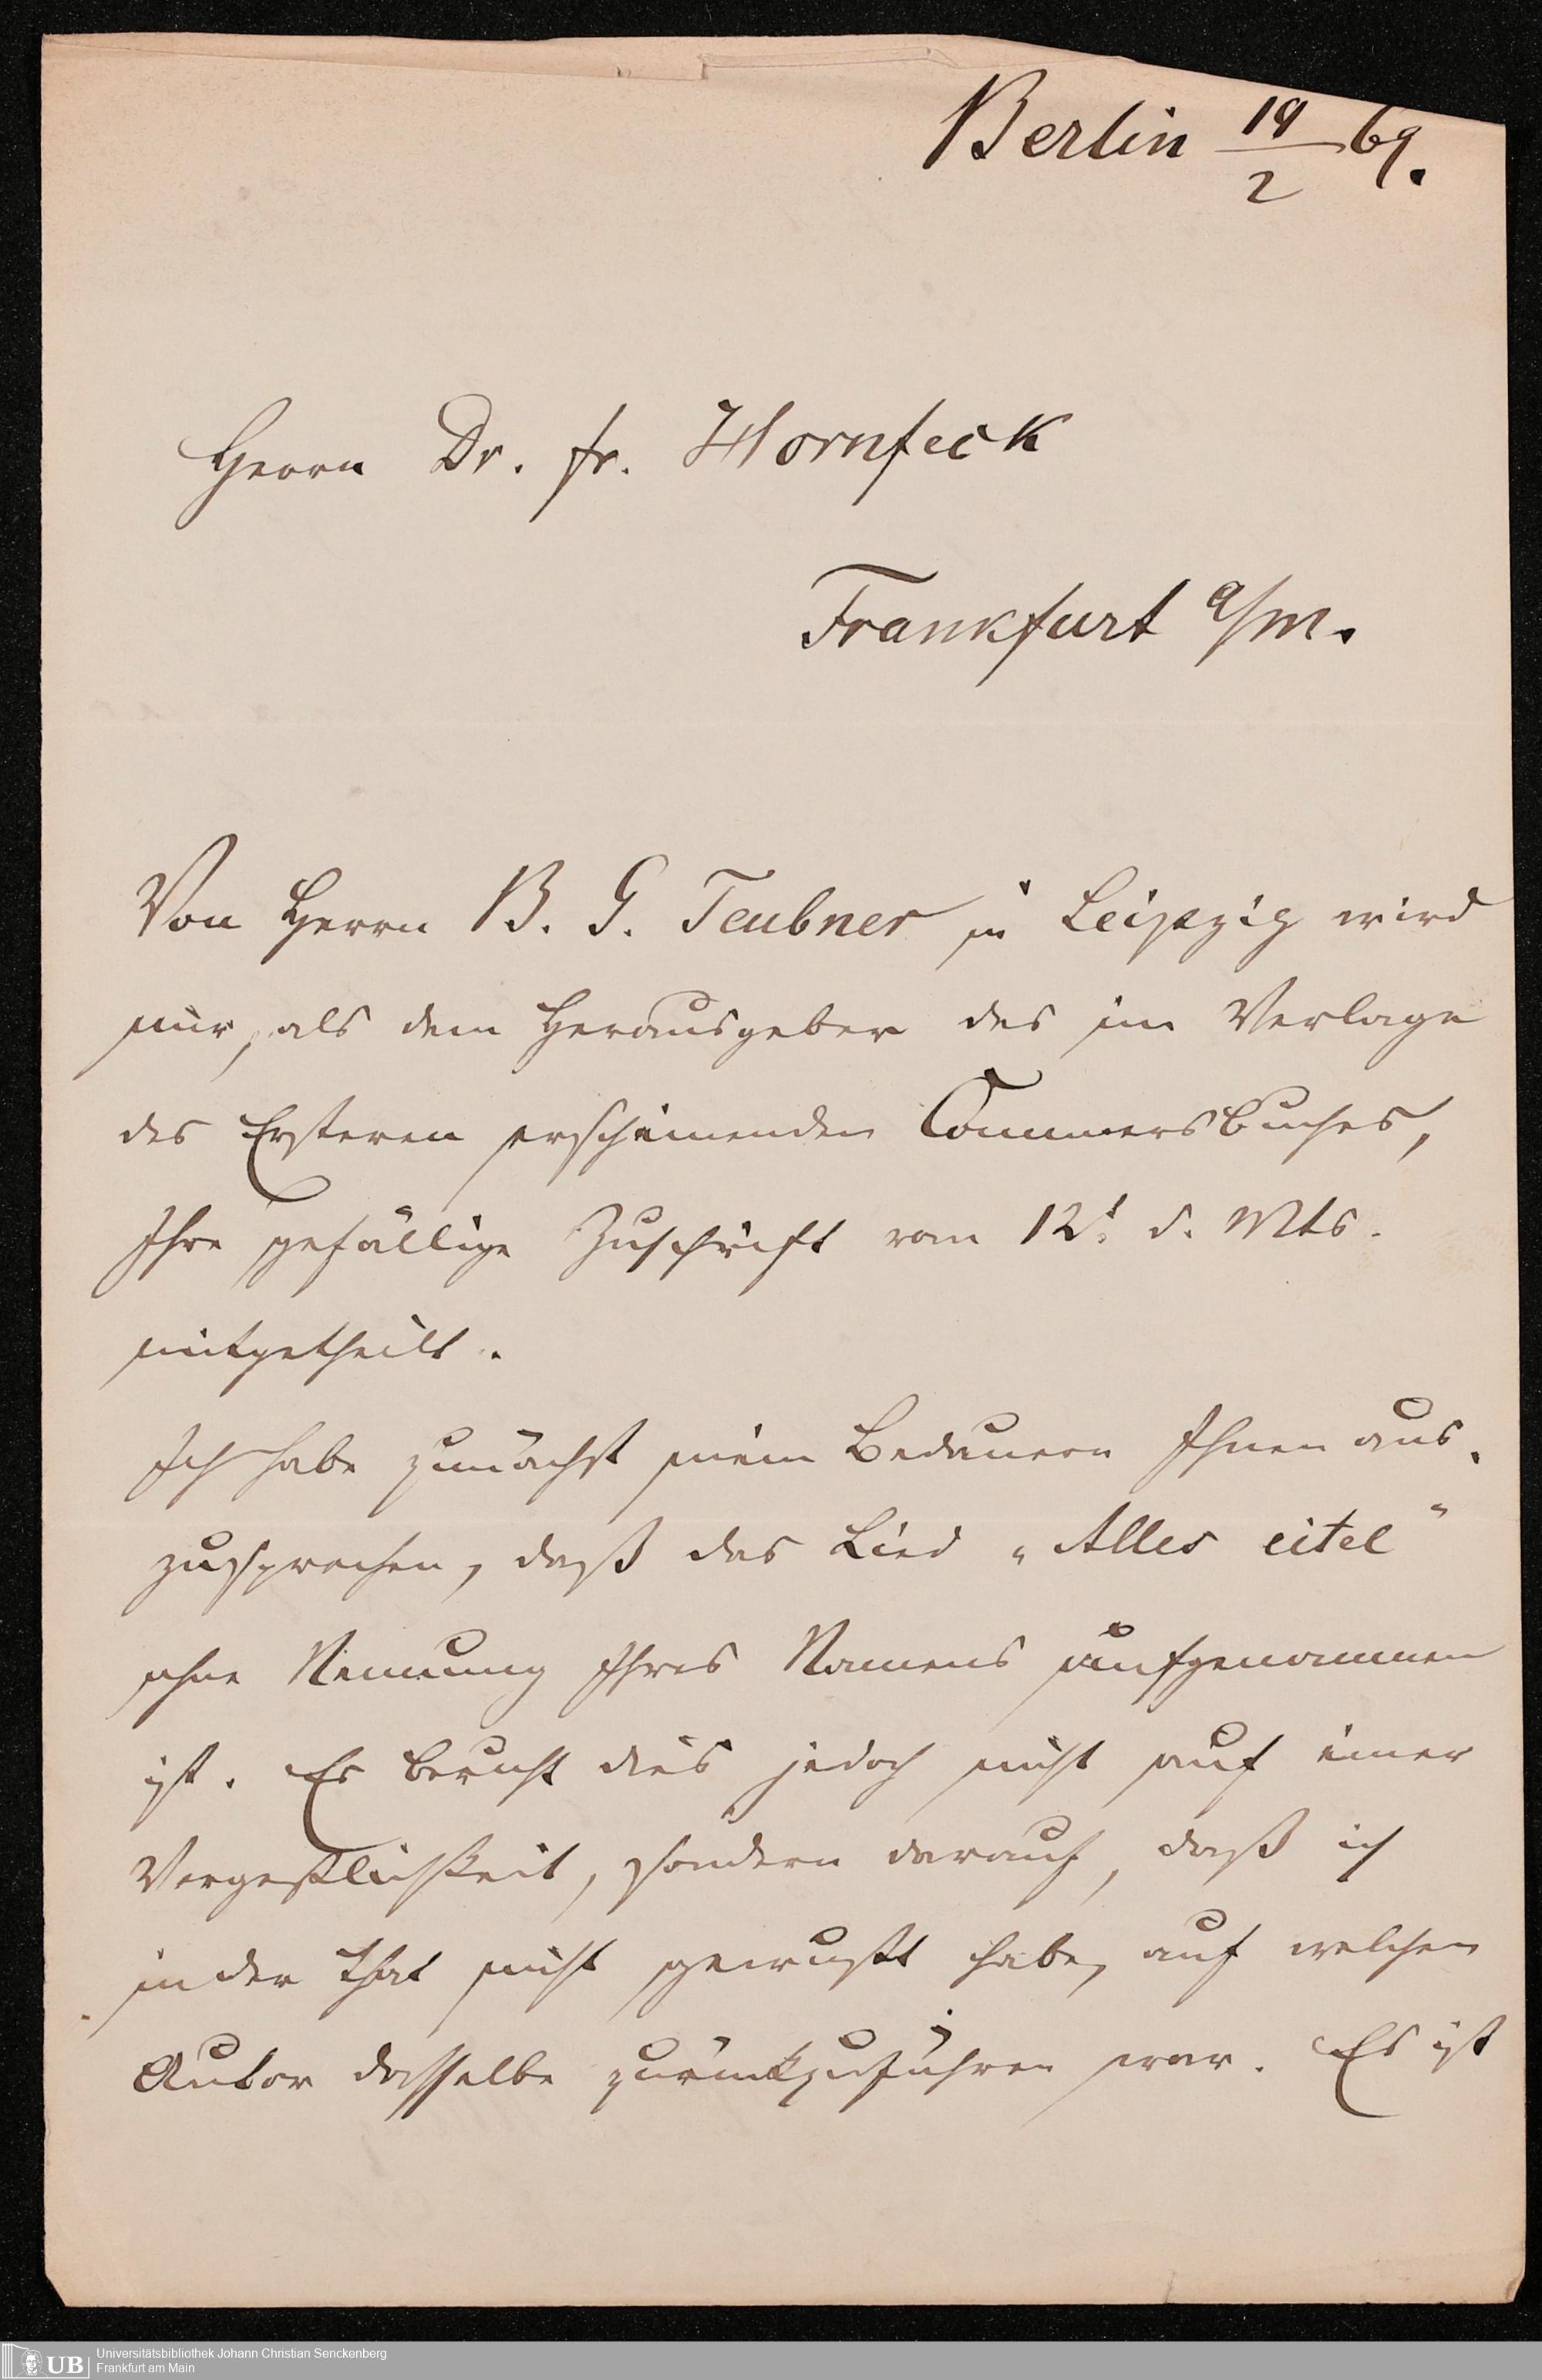 Berlin 19/2 69.
Herrn Dr. Fr. Hornfeck
Frankfurt a/M.
Von Herrn B. G. Teubner in Leipzig wird
mir, als dem Herausgeber des im Verlage
des Ersteren erscheinenden Commersbuches,
Ihre gefällige Zuschrift vom 12t. d. Mts.
mitgetheilt.
Ich habe zunächst mein Bedauern Ihnen aus-
zusprechen, daß das Lied „Alles eitel"
ohne Nennung Ihres Namens aufgenommen
ist. Es beruht dies jedoch nicht auf einer
Vergeßlichkeit, sondern darauf, daß ich
in der That nicht gewußt habe, auf welchen
Autor dasselbe zurückzuführen war. Es ist
UB
Universitätsbibliothek Johann Christian Senckenberg
Frankfurt am Main